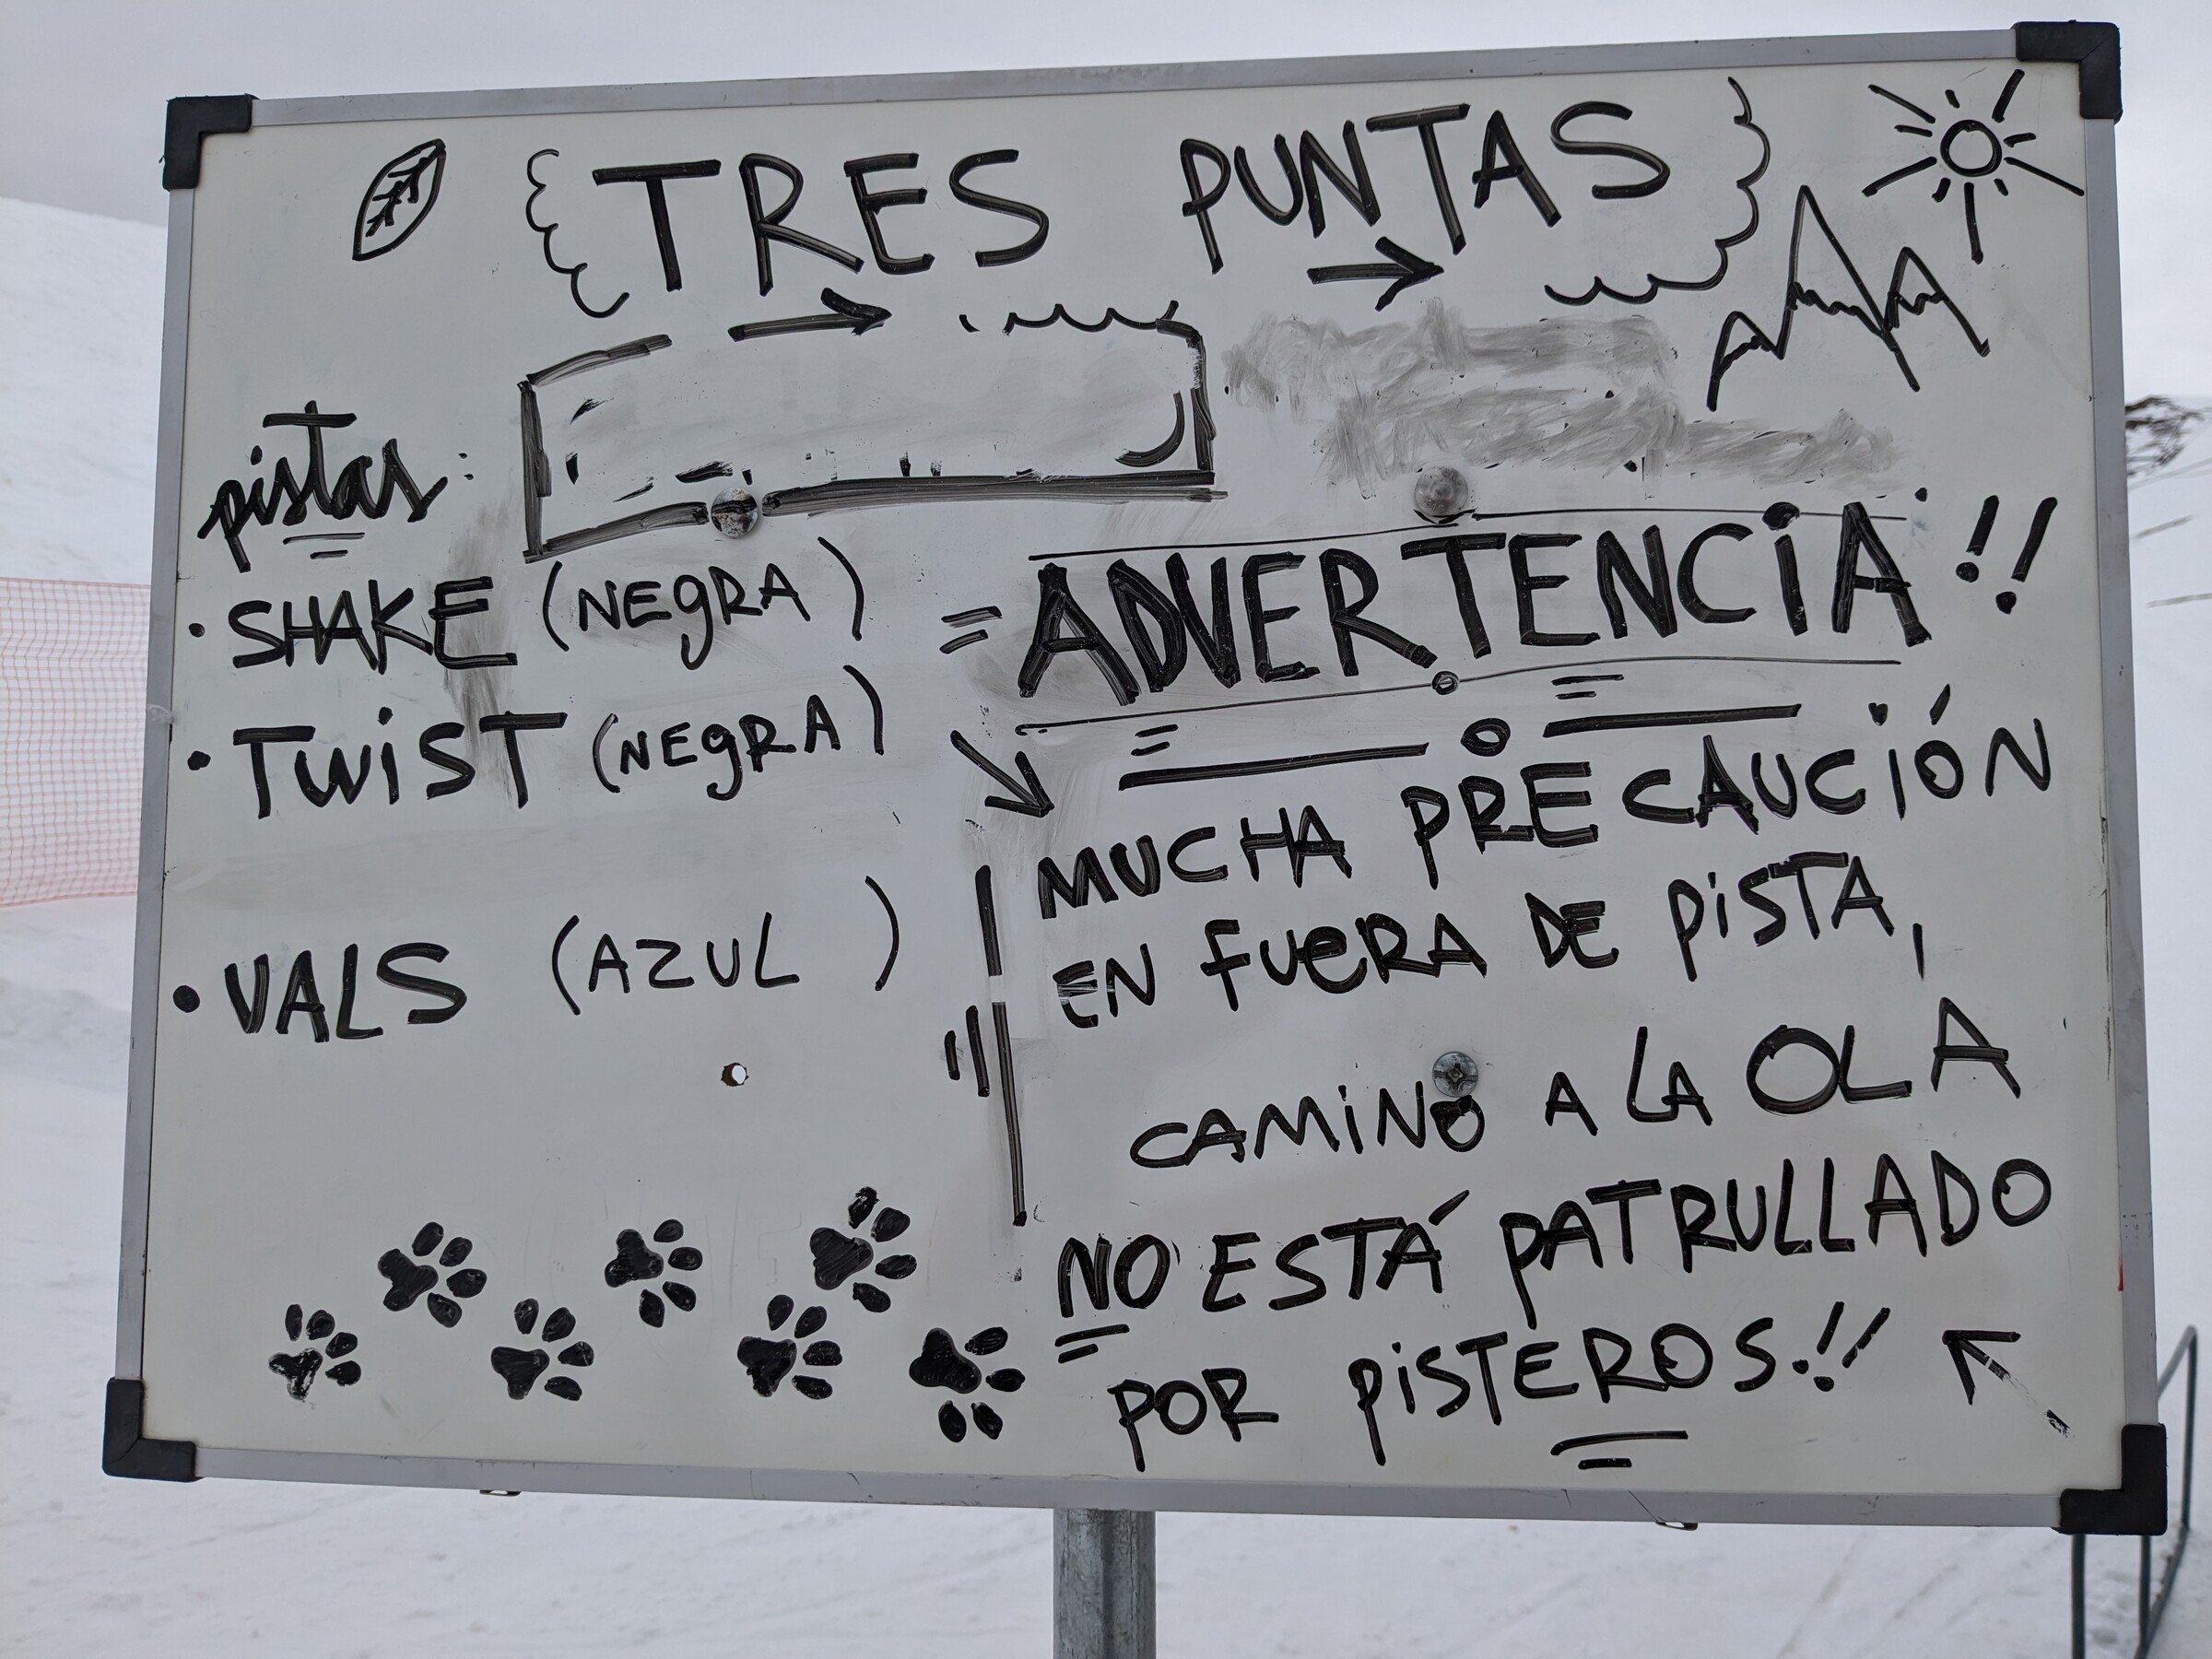 TRES PUNTAS
pistas:
• SHAKE (NEgRA)
• TWiST (NEgRA)
• VALS (AZUL)
= ADVERTENCiA!!
MUCHA PRECAUCiÓN
EN FUeRA DE PiSTA,
CAMiNO A LA OLA
NO ESTÁ PATRULLADO
POR PiSTEROS!!